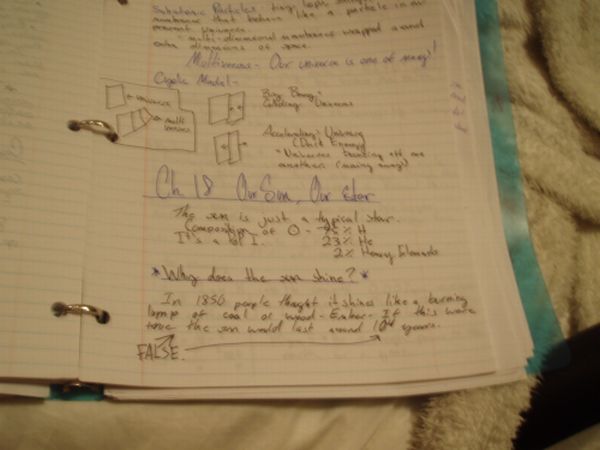 Subatomic Particles: tiny loops
membrane that behave like a particle in our
present universe.
- multi-dimensional membranes wrapped around
extra dimensions of space.
Multiverse - Our universe is one of many!
Cyclic Model -
← universe
← multi
verses
Big Bang =
Colliding Universes
Accelerating Universe
(Dark Energy)
= Universes bouncing off one
another (moving away)
Ch 18 Our Sun, Our Star
The sun is just a typical star.
Composition of O = 75% H
It's a lot 23% He
2% Heavy Elements
* Why does the sun shine? *
In 1850 people thought it shines like a burning
lump of coal or wood - Ember - If this were
true the sun would last around 10⁴ years.
FALSE.